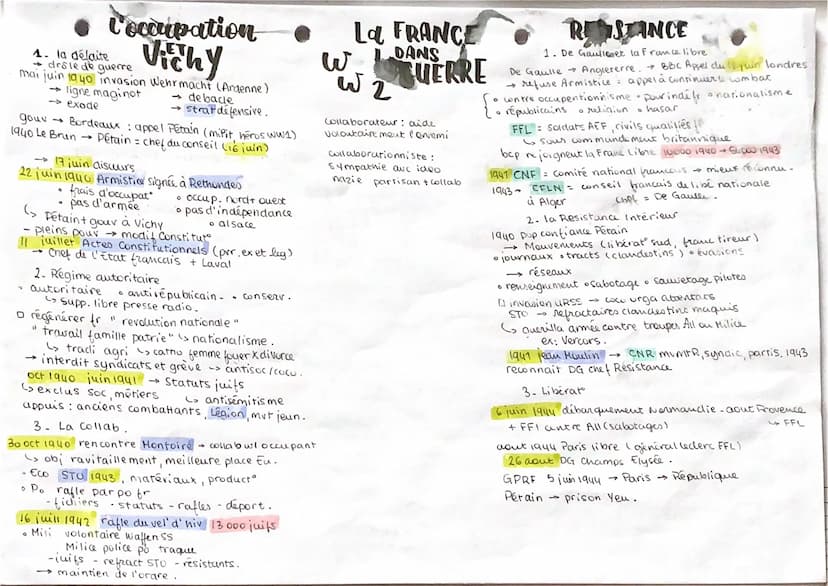 l'occupation
ET
Vichy
1. la défaite
→ drôle de guerre
mai juin 1940 invasion Wehrmacht (Ardenne)
→ ligne maginot → debacle
→ exode → strat défensive.
gouv → Bordeaux : appel Pétain (héros WW1)
1940 Le Brun → Pétain = chef du conseil (16 juin)
→ 17 juin discours
22 juin 1940 Armistice signée à Rethondes
• frais d'occupat° • occup. nord + ouest
• pas d'armée • pas d'indépendance
↳ Pétain + gouv à Vichy • alsace
- pleins pouv → modif Constitut°
11 juillet Actes Constitutionnels (pvr, ex et leg)
→ Chef de l'Etat francais + Laval
2. Régime autoritaire
- autoritaire • antirépublicain - • conserv.
↳ supp. libre presse radio.
régénérer fr " revolution nationale"
" travail famille patrie" ↳ nationalisme.
↳ tradi agri ↳ catho femme foyer X divorce
→ interdit syndicats et grève → antisoc/cocu.
oct 1940 juin 1941 → Statuts juifs
↳ exclus soc, métiers ↳ antisémitisme
appuis : anciens combattants, Légion, mvt jeun.
3. La collab.
30 oct 1940 rencontre Montoire → collab w l occupant
↳ obj ravitaillement, meilleure place Eu.
- Eco STO 1943, matériaux, product°
• Po rafle par po fr
- fichiers - statuts - rafles - déport.
16 juill 1942 rafle du vel' d' hiv 13 000 juifs
• Mili volontaire Waffen SS
Milice police po traque
- juifs - refract STO - résistants.
→ maintien de l'ordre.
La FRANCE
DANS
GUERRE
WW2
collaborateur : aide
volontairement l'ennemi
collaborationniste :
sympathie aux ideo
nazie partisan + collab
RESISTANCE
1. De Gaulle et la France libre
De Gaulle → Angleterre. → BBC Appel du 18 juin londres
→ refuse Armistice = appel à continuer combat
• contre occupationnisme • pour indé fr • nationalisme
• républicains • religion • hasar
FFL = soldats AEF, civils qualifiés
↳ sous commandement britannique
bcp rejoignent la France Libre
1941 CNF = comité national français → mieux reconnu.
1943 → CFLN = conseil français de libé nationale
à Alger chef = De Gaulle.
2. la Résistance Intérieur
1940 Dup confiance Pétain
→ Mouvements (libérat° sud, franc tireur)
• journaux • tracts (clandestins) • évasions
→ réseaux
• renseignement • sabotage • sauvetage pilotes
invasion URSS → coco orga attentats
STO → réfractaires clandestins maquis
↳ guerilla armée contre troupes All ou Milice
ex: Vercors.
1941 Jean Moulin → CNR mvmtR, syndic, partis. 1943
reconnait DG chef Résistance
3. Libérat°
6 juin 1944 débarquement Normandie - aout Provence
+ FFI contre All (sabotages) ↳ FFL
aout 1944 Paris libre (général leclerc FFL)
26 aout DG Champs Elysée.
GPRF 5 juin 1944 → Paris → République
Pétain → prison Yeu.